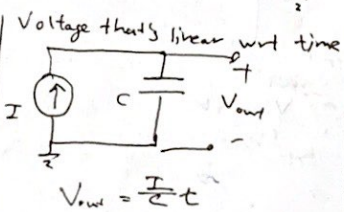 Voltage that's linear wrt time
I
C
+
Vout
-
Vout = I/C t